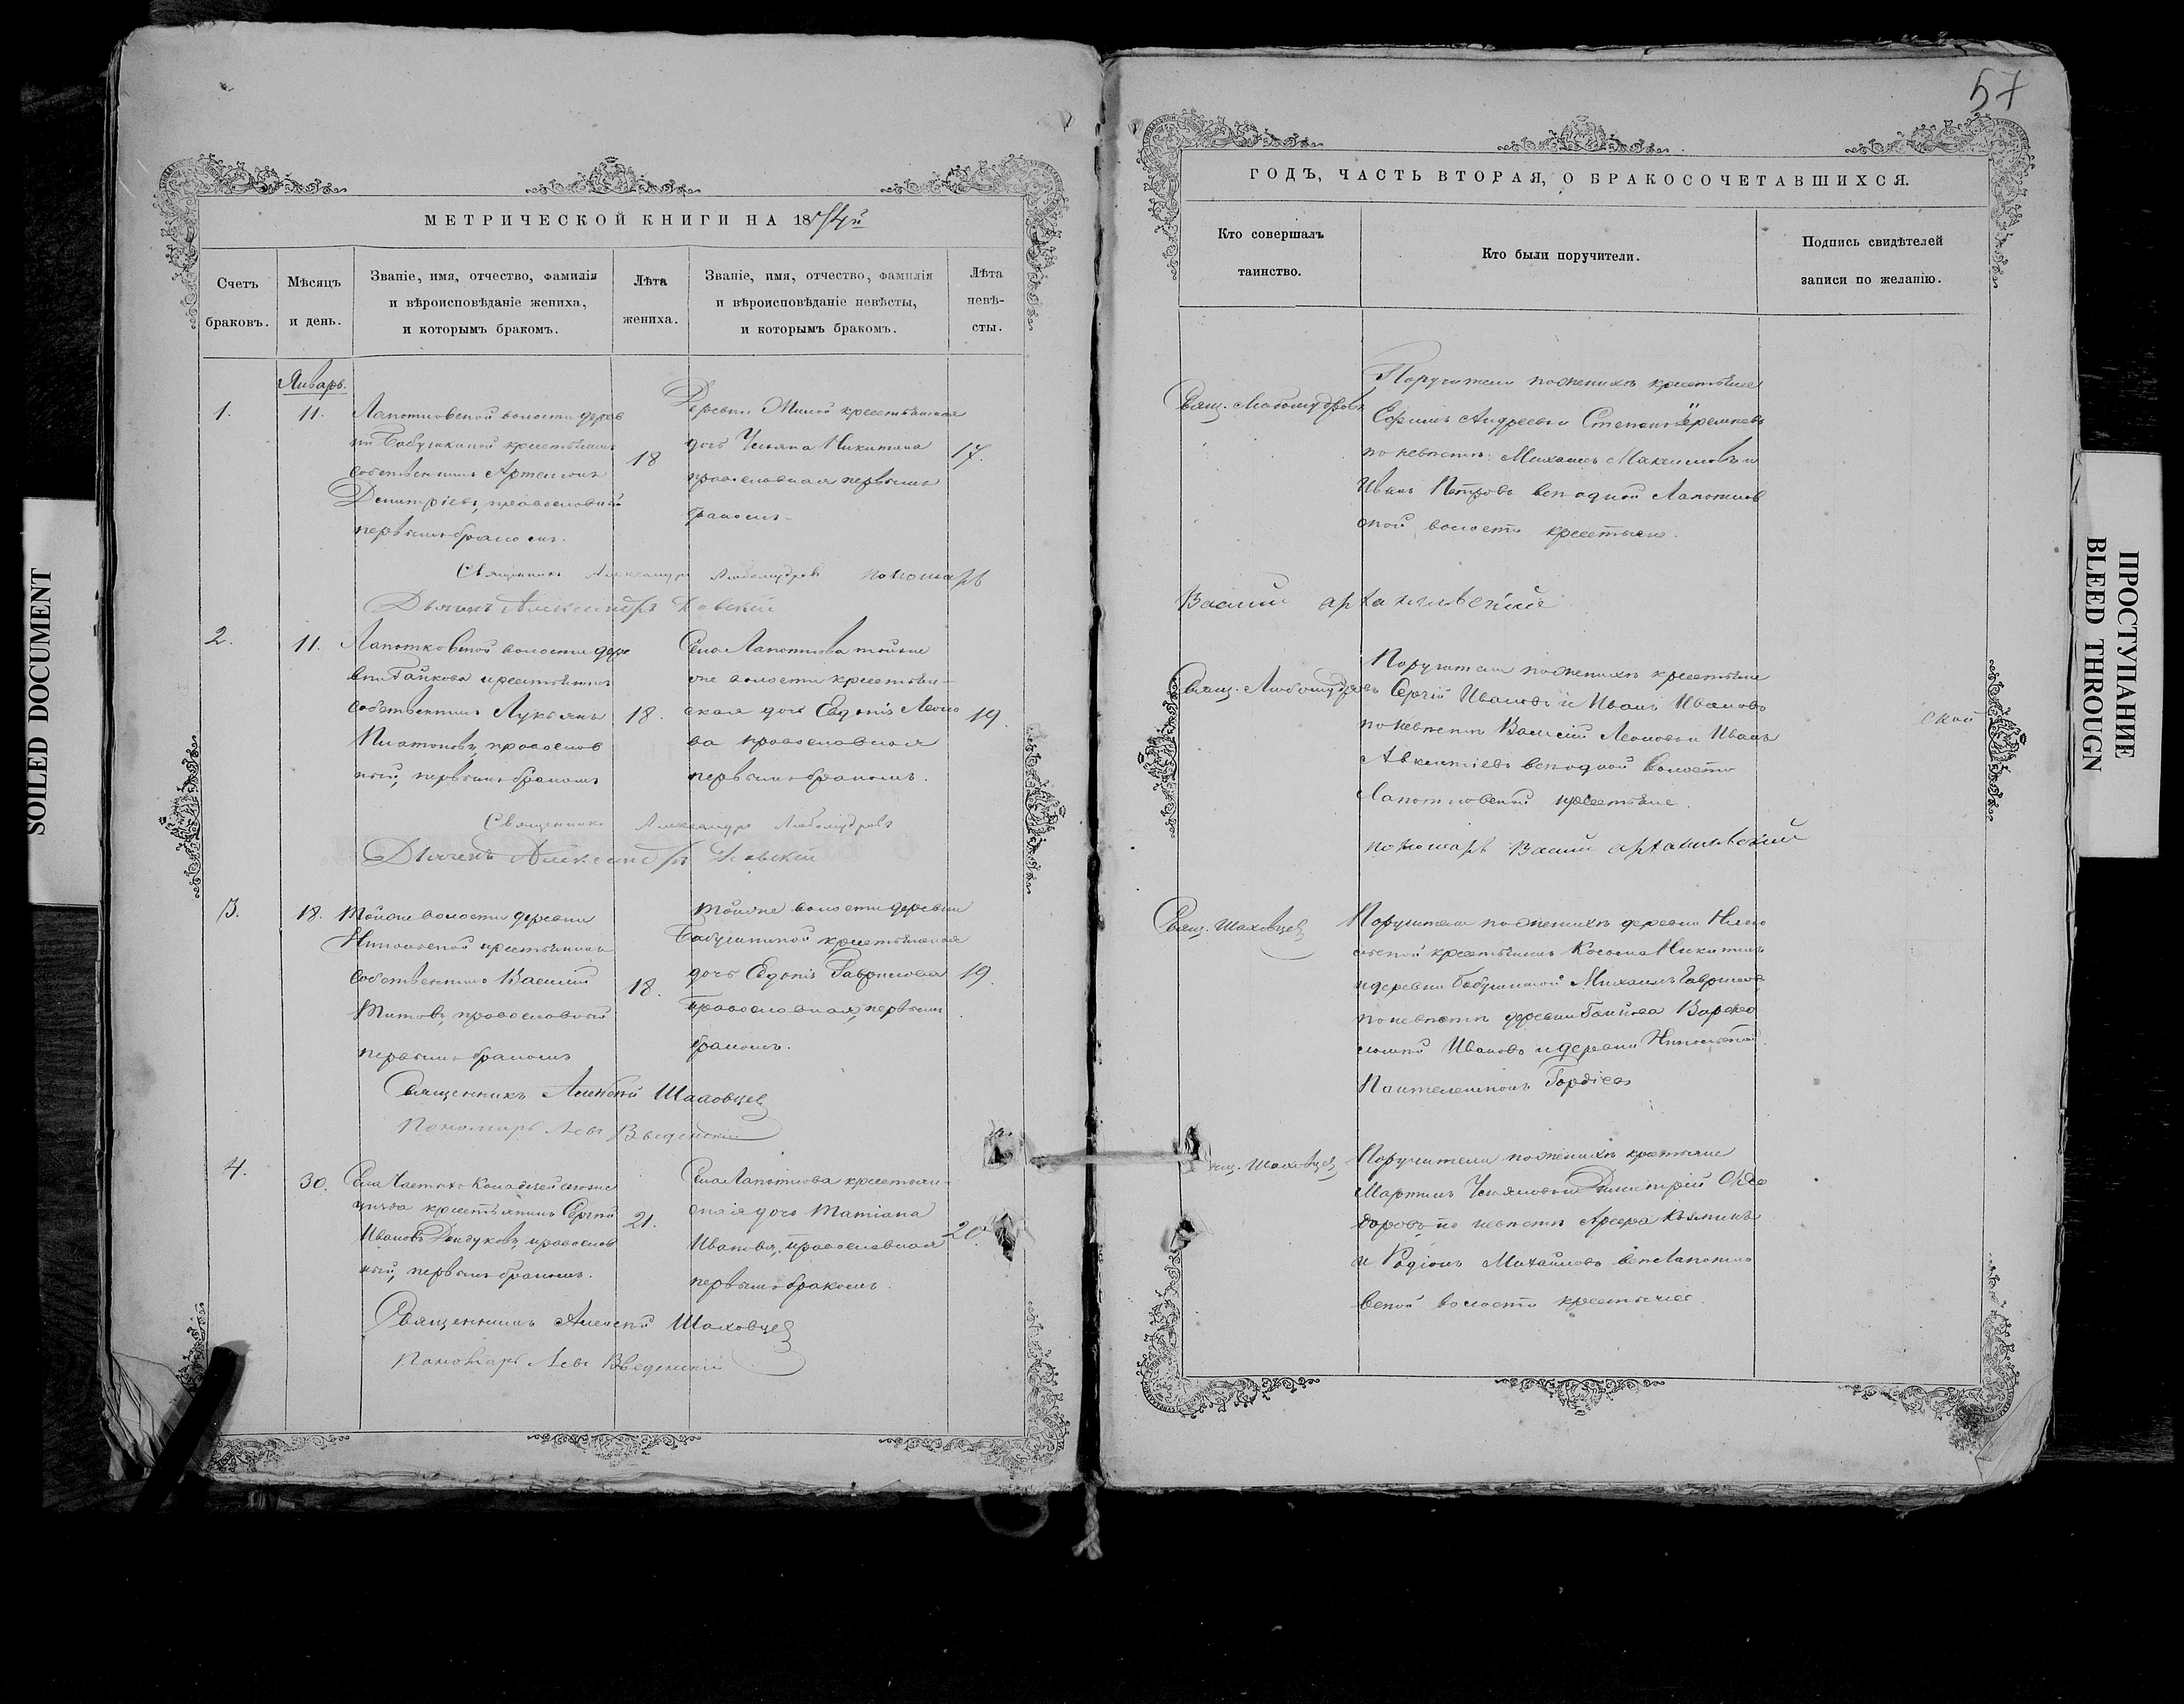 57
МЕТРИЧЕСКОЙ КНИГИ НА 1874й
Счетъ браковъ.
Мѣсяцъ и день.
Званіе, имя, отчество, фамилія
и вѣроисповѣданіе жениха,
и которымъ бракомъ.
Лѣта жениха.
Званіе, имя, отчество, фамилія
и вѣроисповѣданіе невѣсты,
и которымъ бракомъ.
Лѣта невѣ-
сты.
Январь.
1.
11.
Лапотковской волости дерев
ни Бабушкиной крестьянинъ
собственникъ Артемонъ
Димитріевъ, православный
первымъ бракомъ.
18
Деревни крестьянская
дочь Ульяна Никитина
православная первымъ
бракомъ.
17.
Священникъ Александръ Любомудровъ пономарь
Дьячекъ Александръ
2.
11.
Лапотковской волости дере
вни Гайкова крестьянинъ
собственникъ Лукьянъ
Платоновъ, православ
ный, первымъ бракомъ
18.
Села Лапоткова тойже
же волости крестьян-
ская дочь Евдокія Леоно
ва православная
первымъ бракомъ.
19.
Священникъ Александръ Любомудровъ
Дьячекъ Александръ
3.
18.
Тойже волости деревни
Никольской крестьянинъ
собственникъ Василій
Титовъ, православный
первымъ бракомъ
18.
Тойже волости деревни
Бабушкиной крестьянская
дочь Евдокія Гаврилова
православная, первымъ
бракомъ.
19.
Священникъ Алексѣй Шаховцевъ
Пономарь Левъ Введенскій
4.
30.
Села Частыхъ Колодезей
крестьянинъ Сергѣй
Ивановъ Дондуковъ, православ
ный, первымъ бракомъ.
21.
Села Лапоткова крестьян-
ская дочь Татіана
Иванова, православная
первымъ бракомъ.
20
Священникъ Алексѣй Шаховцевъ
Пономарь Левъ Введенскій
ГОДЪ, ЧАСТЬ ВТОРАЯ, О БРАКОСОЧЕТАВШИХСЯ.
Кто совершалъ
таинство.
Кто были поручители.
Подпись свидѣтелей
записи по желанію.
Свящ. Любомудровъ
Поручители по женихѣ крестьяне
Ефимъ Андреевъ и Степанъ
по невѣстѣ: Михаилъ Максимовъ и
Иванъ Петровъ всѣ одной Лапотков
ской волости крестьяне.
Василій Архангельскій
Свящ. Любомудровъ
Поручители по женихѣ крестьяне
Сергій Ивановъ и Иванъ Ивановъ
по невѣстѣ Василій Леоновъ и Иванъ
Авксентіевъ всѣ одной волости
Лапотковской крестьяне.
ской
пономарь Василій Архангельскій
Свящ. Шаховцевъ
Поручители по женихѣ деревни Нико
льской крестьянинъ Косьма Никитинъ
и деревни Бабушкиной Михаилъ Гавриловъ
по невѣстѣ деревни Гайкова Варфо
ломей Ивановъ и деревни Никольской
Пантелеимонъ Гордѣевъ
Шаховцевъ
Поручители по женихѣ крестьяне
Мартинъ Ульяновъ и Димитрій Ѳео
доровъ, по невѣстѣ
и Родіонъ Михайловъ всѣ Лапотко
вской волости крестьяне.
SOILED DOCUMENT
ПРОСТУПАНИЕ
BLEED THROUGH